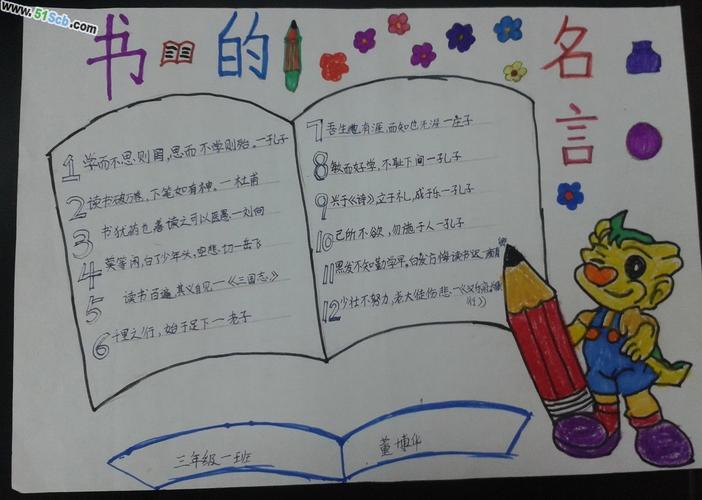 www.51Scb.com
书的名言
1 学而不思则罔,思而不学则殆。一孔子
2 读书破万卷,下笔如有神。一杜甫
3 书犹药也善读之可以医愚一刘向
4 莫等闲,白了少年头,空悲切一岳飞
5 读书百遍,其义自见一《三国志》
6 千里之行,始于足下一老子
7 吾生也有涯,而知也无涯一庄子
8 敏而好学,不耻下问一孔子
9 兴于《诗》,立于礼,成于乐一孔子
10 己所不欲,勿施于人一孔子
11 黑发不知勤学早。白发方悔读书迟。
12 少壮不努力,老大徒伤悲。一《
行》
三年级一班
董博华